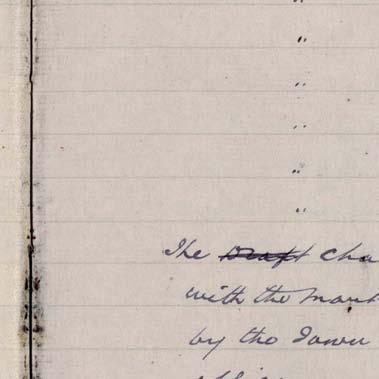 "
"
"
"
"
"
The Draft Cha
with the Mark
by the Town